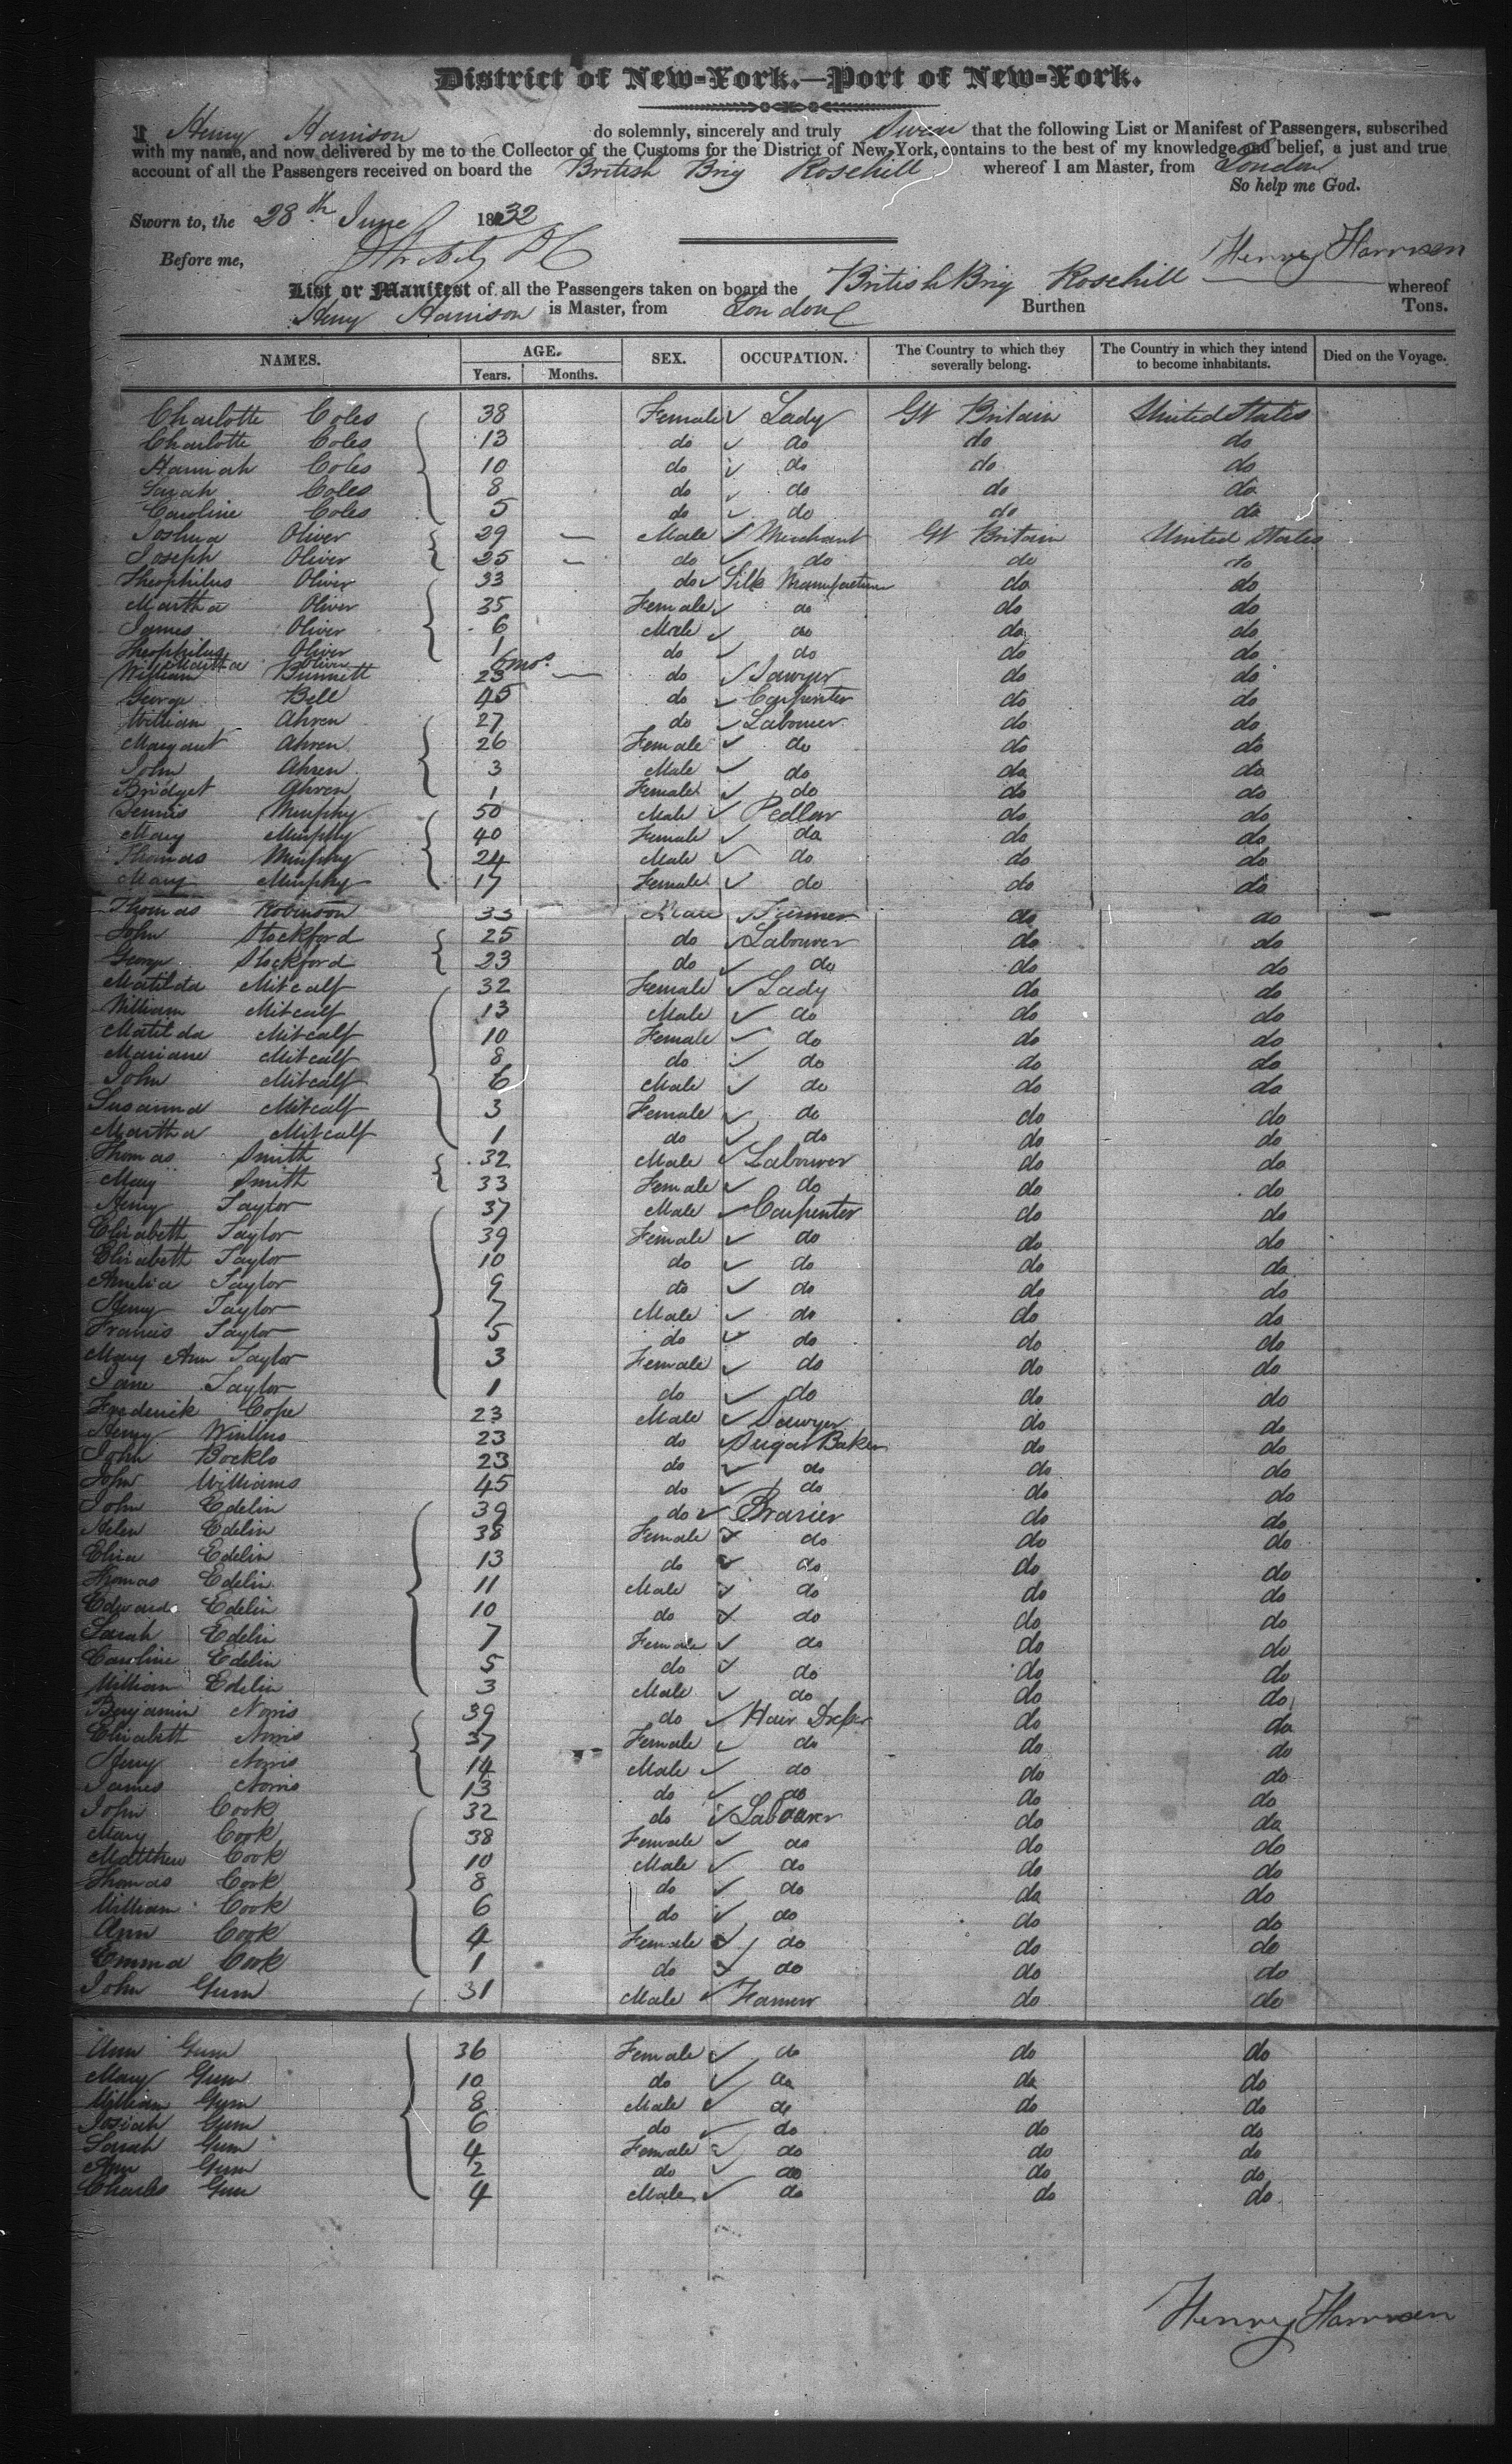 District of New-York.—Port of New-York.
I Henry Harrison do solemnly, sincerely and truly Swear that the following List or Manifest of Passengers, subscribed
with my name, and now delivered by me to the Collector of the Customs for the District of New-York, contains to the best of my knowledge and belief, a just and true
account of all the Passengers received on board the British Brig Rosehill whereof I am Master, from London
So help me God.
Sworn to, the 28th June 1832
Before me, Henry Harrison
List or Manifest of all the Passengers taken on board the British Brig Rosehill whereof
Henry Harrison is Master, from London Burthen Tons.
NAMES. AGE. Years. Months. SEX. OCCUPATION. The Country to which they severally belong. The Country in which they intend to become inhabitants. Died on the Voyage.
Charlotte Coles 38 Female Lady Gt Britain United States
Charlotte Coles 13 do do do do
Hannah Coles 10 do do do do
Sarah Coles 8 do do do do
Caroline Coles 5 do do do do
Joshua Oliver 29 — Male Merchant Gt Britain United States
Joseph Oliver 25 — do do do do
Theophilus Oliver 33 do Silk Manufacturer do do
Martha Oliver 35 Female do do do
James Oliver 6 Male do do do
Theophilus Oliver 1 do do do do
Martha Oliver 6 mos.
William Bunnett 23 — do Sawyer do do
George Bell 45 do Carpenter do do
William Ahren 27 do Labourer do do
Margaret Ahren 26 Female do do do
John Ahren 3 Male do do do
Bridget Ahren 1 Female do do do
Dennis Murphy 50 Male Pedlar do do
Mary Murphy 40 Female do do do
Thomas Murphy 24 Male do do do
Mary Murphy 17 Female do do do
Thomas Robinson 33 Male Farmer do do
John Stockford 25 do Labourer do do
George Stockford 23 do do do do
Matilda Mitcalf 32 Female Lady do do
William Mitcalf 13 Male do do do
Matilda Mitcalf 10 Female do do do
Mariane Mitcalf 8 do do do do
John Mitcalf 6 Male do do do
Susanna Mitcalf 3 Female do do do
Martha Mitcalf 1 do do do do
Thomas Smith 32 Male Labourer do do
Mary Smith 33 Female do do do
Henry Taylor 37 Male Carpenter do do
Elizabeth Taylor 39 Female do do do
Elizabeth Taylor 10 do do do do
Amelia Taylor 9 do do do do
Henry Taylor 7 Male do do do
Francis Taylor 5 do do do do
Mary Ann Taylor 3 Female do do do
Jane Taylor 1 do do do do
Frederick Cope 23 Male Sawyer do do
Henry 23 do Sugar Baker do do
John 23 do do do do
John Williams 45 do do do do
John Edelin 39 do Brasier do do
Helen Edelin 38 Female do do do
Eliza Edelin 13 do do do do
Thomas Edelin 11 Male do do do
Edward Edelin 10 do do do do
Sarah Edelin 7 Female do do do
Caroline Edelin 5 do do do do
William Edelin 3 Male do do do
Benjamin Norris 39 do Hair Dresser do do
Elizabeth Norris 37 Female do do do
Henry Norris 14 Male do do do
James Norris 13 do do do do
John Cook 32 do Labourer do do
Mary Cook 38 Female do do do
Matthew Cook 10 Male do do do
Thomas Cook 8 do do do do
William Cook 6 do do do do
Ann Cook 4 Female do do do
Emma Cook 1 do do do do
John Gum 31 Male Farmer do do
Ann Gum 36 Female do do do
Mary Gum 10 do do do do
William Gum 8 Male do do do
Josiah Gum 6 do do do do
Sarah Gum 4 Female do do do
Ann Gum 2 do do do do
Charles Gum 4 Male do do do
Henry Harrison